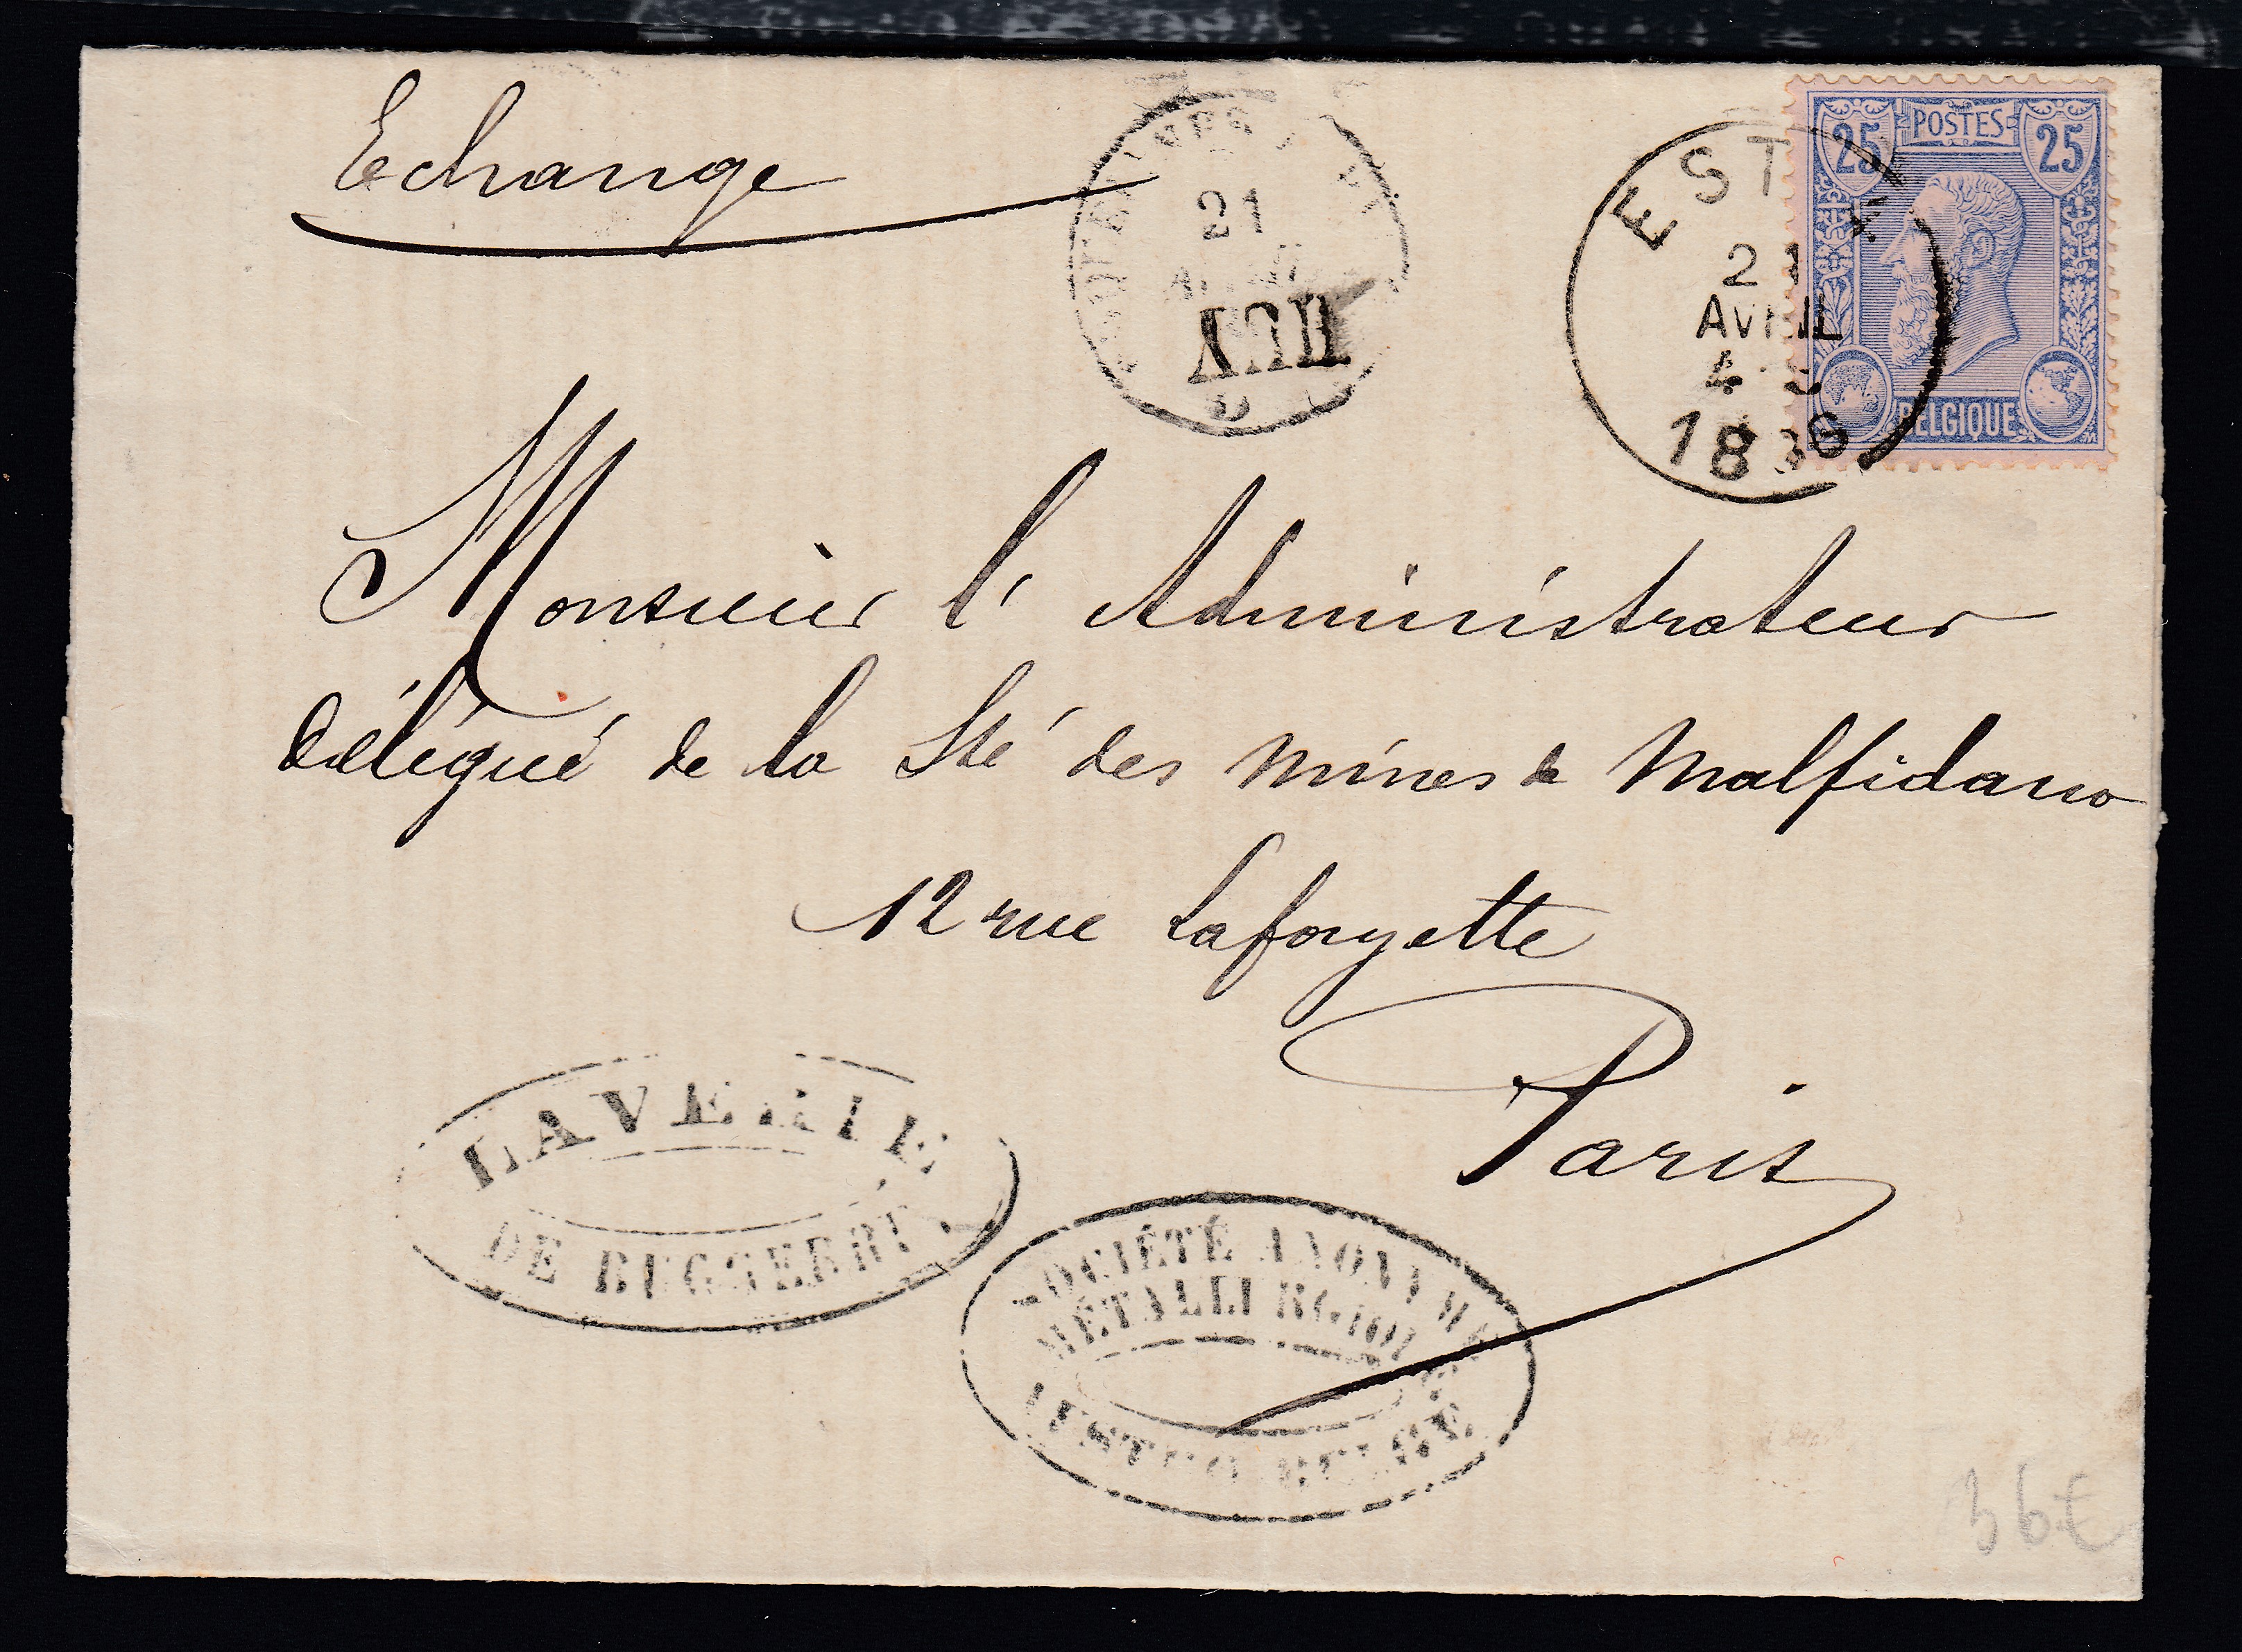 Echange
21
HUY
EST 4
21
AVRIL
4 S
1886
25 POSTES 25
BELGIQUE
Monsieur l'Administrateur
délégué de la Sté des Mines de Malfidano
12 rue Lafayette
Paris
LAVERIE
DE BUGGERRU
SOCIÉTÉ ANONYME
MÉTALLURGIQUE
AUSTRO BELGE
36€